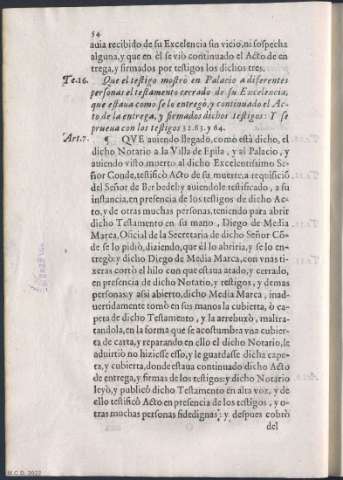 54
auia recibido de su Excelencia sin vicio, ni sospecha
alguna, y que en èl se viò continuado el Acto de en-
trega, y firmados por testigos los dichos tres.
Te.16. Que el testigo mostrò en Palacio a diferentes
personas el testamento cerrado de su Excelencia,
que estaua como se lo entregò, y continuado el Ac-
to de la entrega, y firmados dichos testigos: Y se
prueua con los testigos 32. 63. y 64.
Art.7. ¶ QVE auiendo llegado, como està dicho, el
dicho Notario a la Villa de Epila, y al Palacio, y
auiendo visto muerto al dicho Excelentissimo Se-
ñor Conde, testificò Acto de su muerte, a requisiciõ
del Señor de Berbedel; y auiendole testificado, a su
instancia, en presencia de los testigos de dicho Ac-
to, y de otras muchas personas, teniendo para abrir
dicho Testamento en su mano, Diego de Media
Marca, Oficial de la Secretaria de dicho Señor Cõ-
de se lo pidiò, diziendo, que èl lo abriria, y se lo en-
tregò: y dicho Diego de Media Marca, con vnas ti-
xeras cortò el hilo con que estaua atado, y cerrado,
en presencia de dicho Notario, y testigos, y demas
personas: y assi abierto, dicho Media Marca, inad-
uertidamente tomò en sus manos la cubierta, ò ca-
peta de dicho Testamento, y la arrebuxò, maltra-
tandola, en la forma que se acostumbra vna cubier-
ta de carta, y reparando en ello el dicho Notario, le
aduirtiò no hiziesse esso, y le guardasse dicha cape-
ta, y cubierta, donde estaua continuado dicho Acto
de entrega, y firmas de los testigos: y dicho Notario
leyò, y publicò dicho Testamento en alta voz, y de
ello testificò Acto en presencia de los testigos, y o-
tras muchas personas fidedignas; y despues cobrò
del
M.C.D. 2022